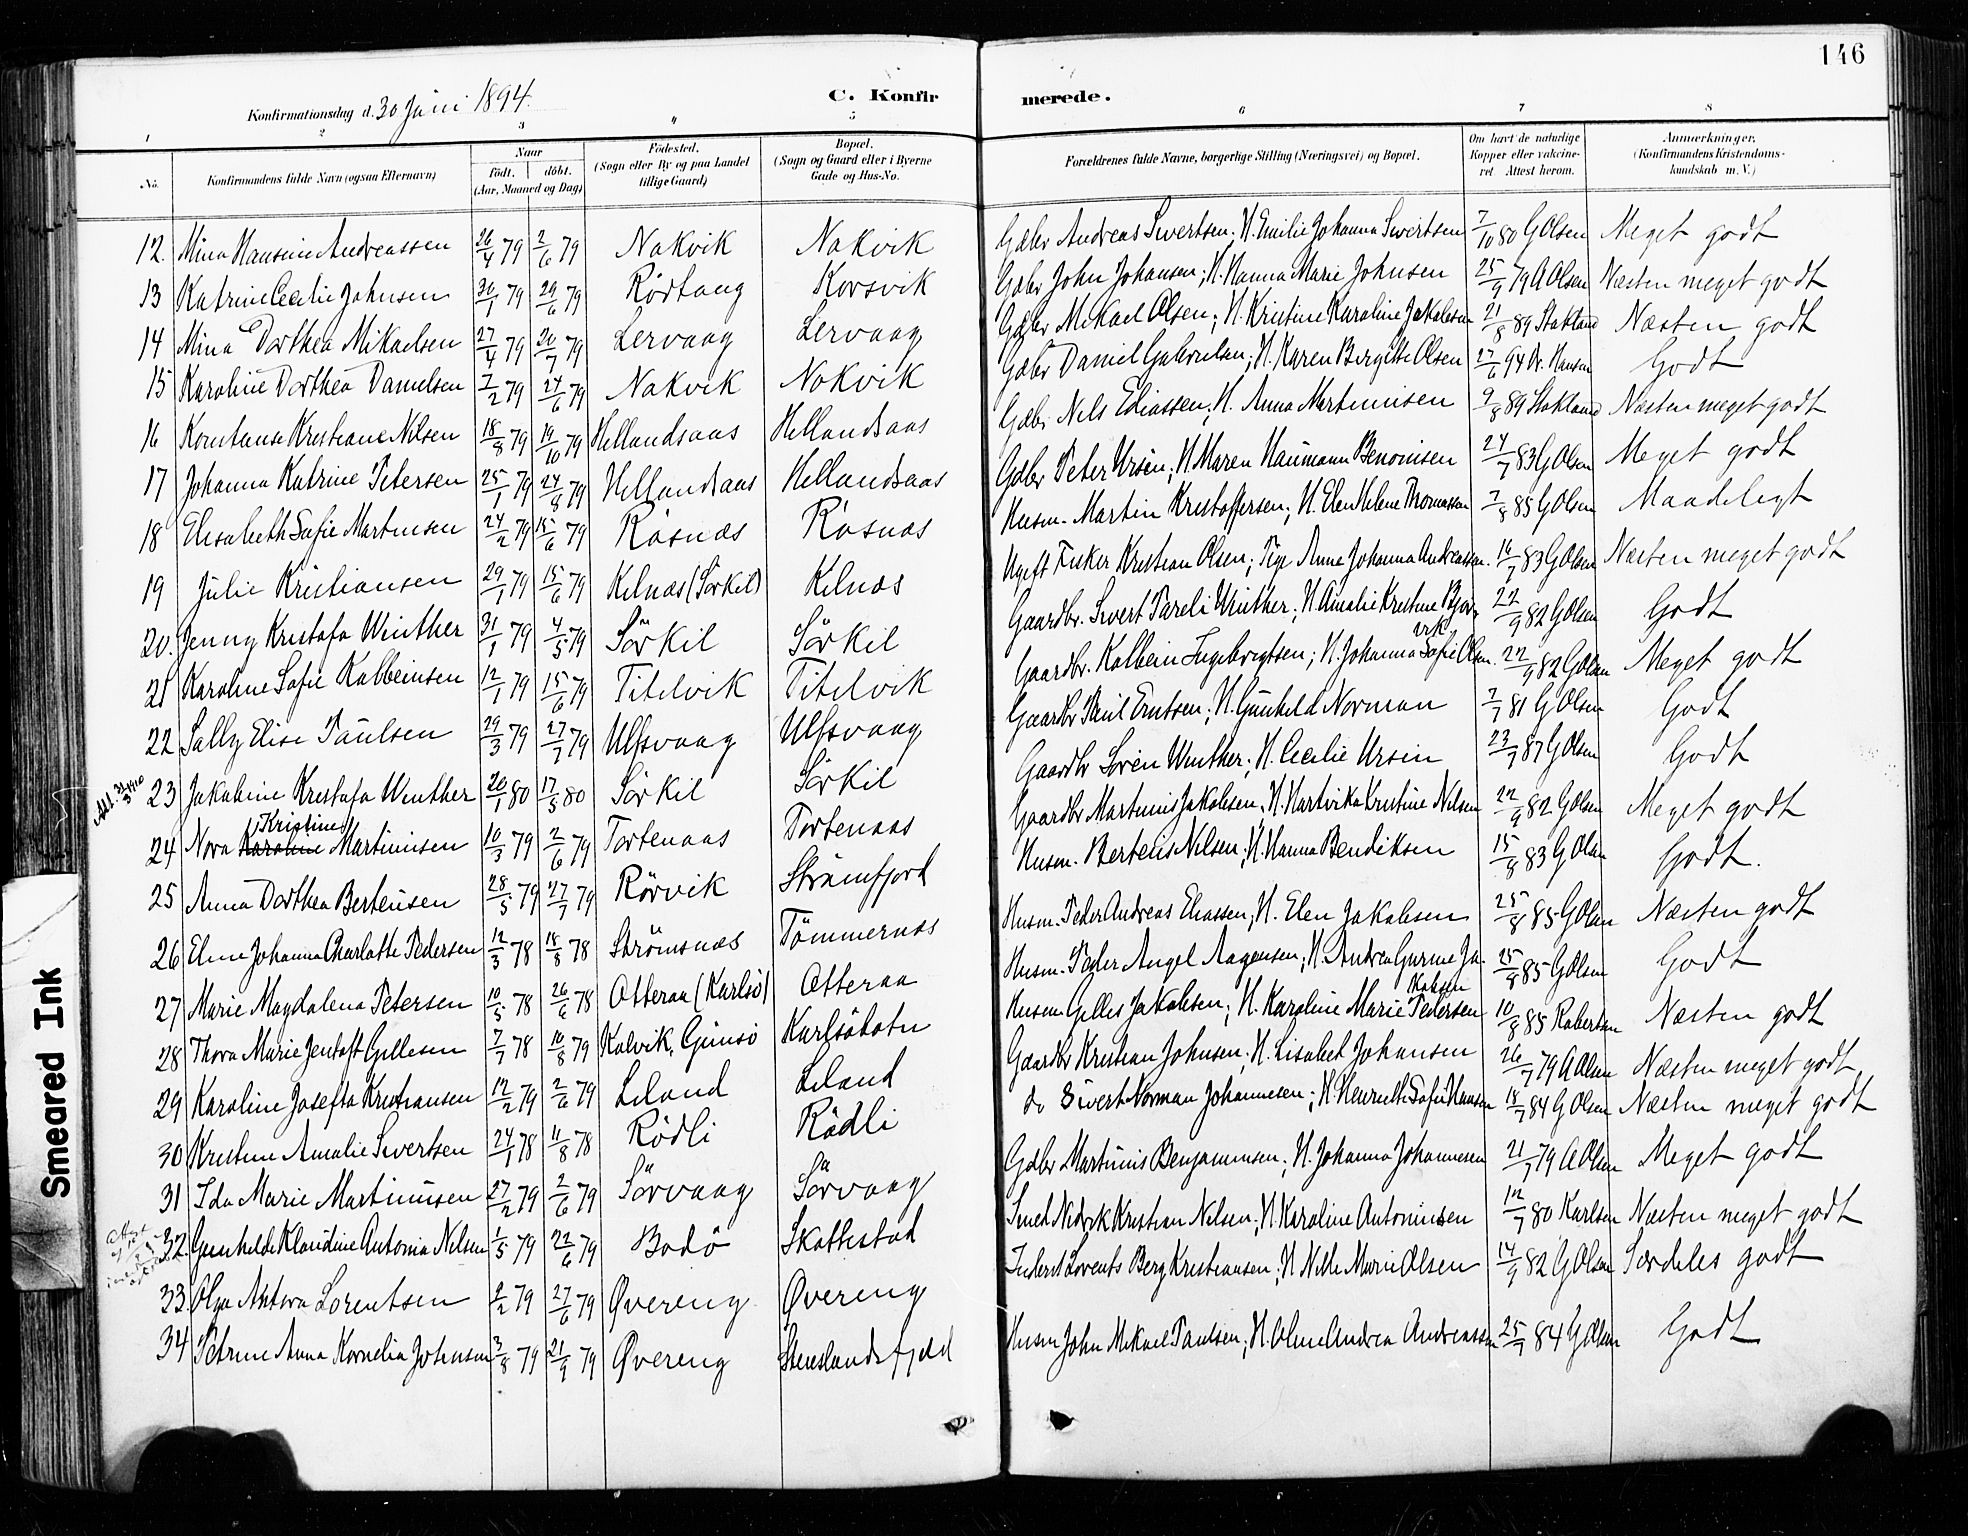 146
Konfirmationsdag d. 30 Juni 1894.
C. Konfirmerede.
1 2 3 4 5 6 7 8
No. Konfirmandens fulde Navn (ogsaa Efternavn) Naar født. døbt. (Aar, Maaned og Dag) Födested. (Sogn eller By og paa Landet tillige Gaard) Bopæl. (Sogn og Gaard eller i Byerne Gade og Hus-No. Forældrenes fulde Navne, borgerlige Stilling (Næringsvei) og Bopæl. Om havt de naturlige Kopper eller vakcineret Attest herom. Anmærkninger, (Konfirmandens Kristendomskundskab m. V.)
12. Mina Hansine Andreassen 26/4 79 2/6 79 Nakvik Nakvik Gdbr Andreas Sivertsen; H. Emilie Johanna Sivertsen 7/10 80 G Olsen Meget godt
13 Katrine Cecilie Johnsen 30/1 79 29/6 79 Rödtang Korsvik Gdbr John Johansen; H. Hanna Marie Johnsen 25/9 79 A Olsen Næsten meget godt
14 Mina Dorthea Mikaelsen 27/4 79 20/7 79 Lervaag Lervaag Gdbr Mikael Olsen; H. Kristine Karoline Jakobsen 21/8 89 Stokland Næsten godt
15 Karoline Dorthea Danielsen 7/2 79 24/6 79 Nakvik Nakvik Gdbr Daniel Gabrielsen; H. Karen Birgitte Olsen 27/6 94 Dr. Hansen Godt
16 Konstanse Kristiane Nilsen 18/8 79 19/10 79 Hellandsaas Hellandsaas Gdbr Nels Eliassen; H. Anna Martinisen 9/8 89 Stokland Næsten meget godt
17 Johanna Katrine Petersen 25/1 79 24/8 79 Hellandsaas Hellandsaas Gdbr Peter Ursin; H Maren Haumann Benonisen 24/7 83 G Olsen Meget godt
18 Elisabeth Sofie Martinsen 24/2 79 15/6 79 Røsnæs Røsnæs Husm. Martin Kristoffersen; H. Elen Helene Thomassen 7/8 85 G Olsen Maadeligt
19 Julie Kristiansen 29/1 79 15/6 79 Kilnæs (Sörkil) Kilnæs Ugift Fisker Kristian Olsen; Pige Anne Johanna Andreassen. 16/7 83 G Olsen Næsten meget godt
20. Jenny Kristofa Winther 31/1 79 4/5 79 Sörkil Sörkil Gaardbr. Sivert Pareli Winther; H. Amalie Kristine Bjørvik 22/9 82 G Olsen Godt
21 Karoline Sofie Kolbeinsen 12/1 79 15/6 79 Titelvik Titelvik Gaardbr. Kolbein Ingebrigtsen; H. Johanna Sofie Olsen. 22/9 82 G Olsen Meget godt
22 Sally Elise Paulsen 29/3 79 27/7 79 Ulfsvaag Ulfsvaag Gaardbr Paul Erntsen; H. Gunhild Norman 7/7 81 G Olsen Godt
Att. 31/3 1910
23 Jakobine Kristofa Winther 20/1 80 17/5 80 Sörkil Sörkil Gaardbr Sören Winther; H. Cecilie Ursin 23/7 87 G Olsen Godt
24 Nora Karoline Kristine Martinisen 10/3 79 2/6 79 Tortenaas Tortenaas Gaardbr Martinus Jakobsen; H. Hartvika Kristine Nilsen 22/9 82 G Olsen Meget godt
25 Anna Dorthea Berteusen 28/5 79 27/7 79 Rörvik Strömfjord Husm. Berteus Nilsen; H. Hanna Bendiksen 15/8 83 G Olsen Godt.
26 Eline Johanna Charlotte Pedersen 12/3 78 18/8 78 Strömsnæs Tömmernæs Husm. Peder Andreas Eliassen; H. Elen Jakobsen 25/8 85 G Olsen Næsten godt
27 Marie Magdalena Petersen 10/5 78 26/6 78 Otteraa (Karlsö) Otteraa Husm. Peder Angel Aagensen; H. Andrea Gurine Jakobsen 25/8 85 G Olsen Godt
28 Thora Marie Jentoft Gillesen 7/7 78 10/8 79 Kalvik, Gimsö Karlsöbotn Husm Gilles Jakobsen; H. Karoline Marie Pedersen 10/8 85 Robertsen Næsten godt
29 Karoline Josefta Kristiansen 12/2 79 2/6 79 Leland Leland Gaardbr Kristian Johnsen; H. Lisabet Johansen 26/7 79 A Olsen Næsten meget godt
30 Kristine Amalie Sivertsen 24/1 78 11/8 78 Rödli Rödli do Sivert Norman Johannesen; H. Henriette Sofie Hansen 18/7 84 G Olsen Næsten meget godt
31 Ida Marie Martinusen 27/2 79 2/6 79 Sörvaag Sörvaag Gdbr Martinus Benjaminsen; H. Johanna Johannesen 21/7 79 A Olsen Meget godt
32. Gunhilde Klaudine Antonia Nilsen 1/5 79 22/6 79 Bodö Skottestad Smed Nidrik Kristian Nilsen; H. Karoline Antoninsen 12/7 80 Karlsen Næsten meget godt
33. Olga Antora Lorentsen 2/2 79 27/6 79 Øvereng Øvereng Inderst Lorents Berg Kristiansen; H Nille Marie Olsen 14/9 82 G Olsen Særdeles godt
34 Petrine Anna Kornelia Johnsen 3/8 79 21/9 79 Øvereng Steneslandsfjeld Husm John Mikael Paulsen; H. Oline Andrea Andreassen 25/7 84 G Olsen Godt
Smeared Ink